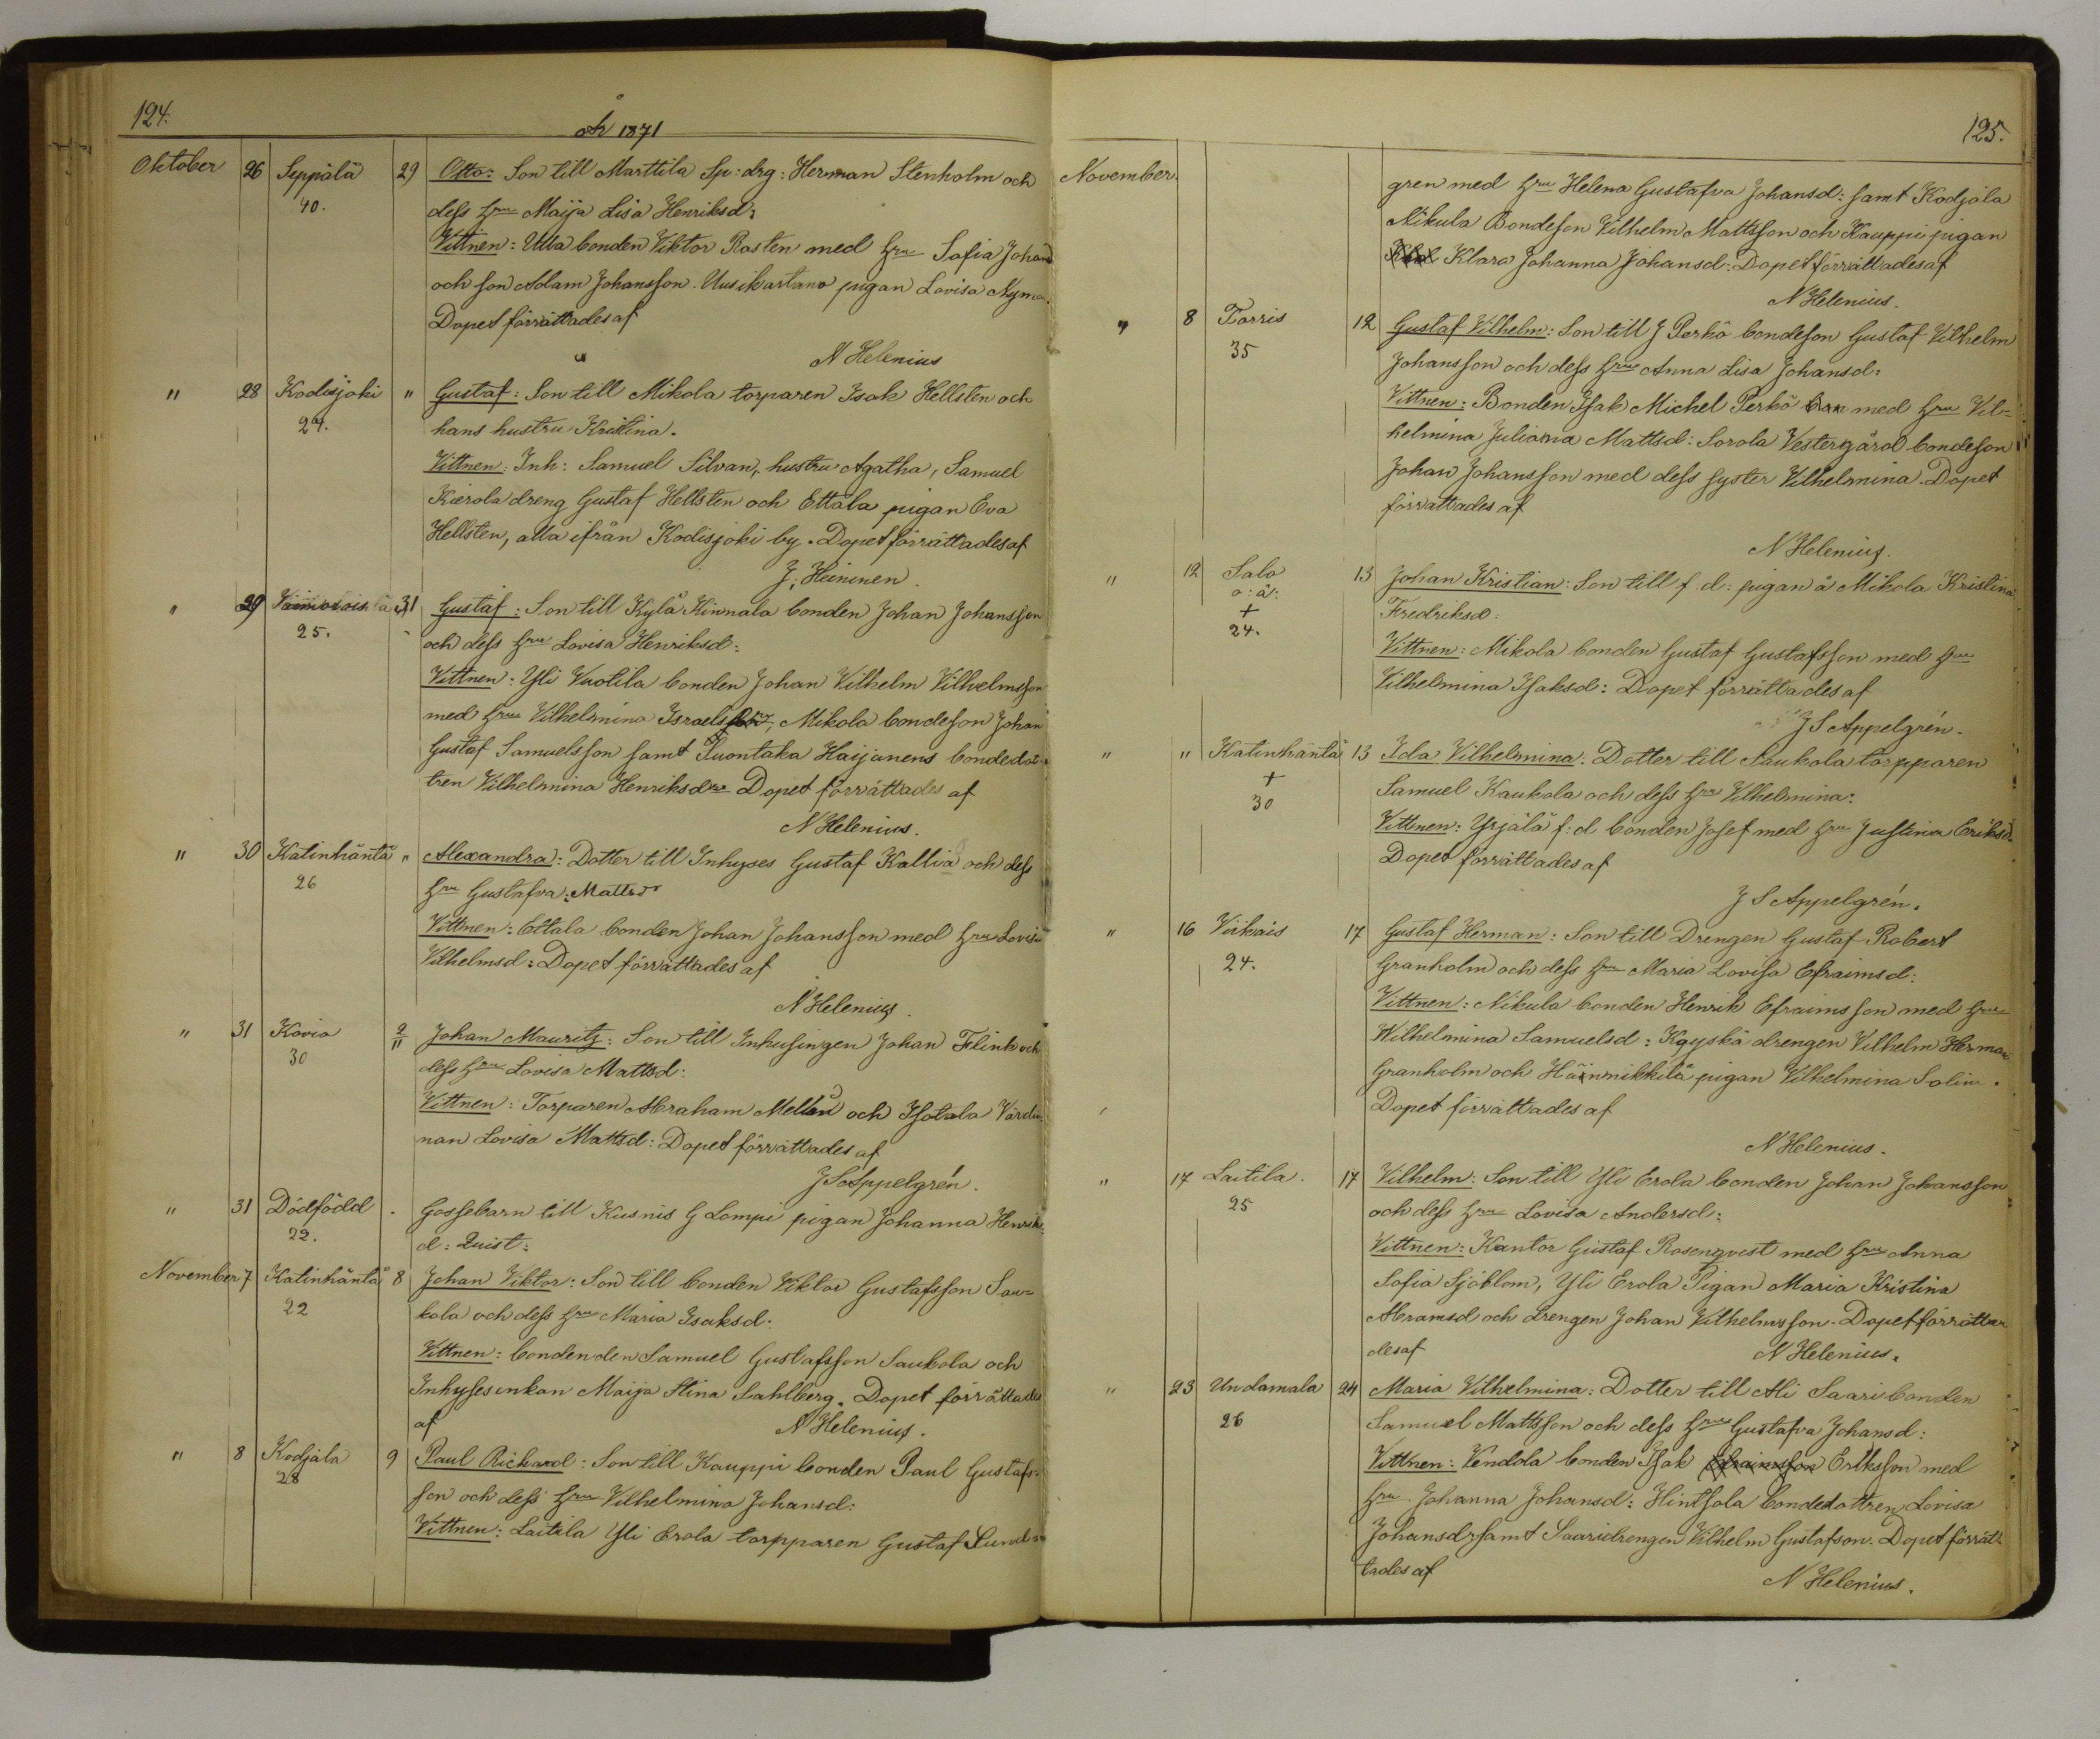 124.
År 1871
Oktober 26 Seppälä 29 Otto: Son till Marttila Sp: drg: Herman Stenholm och
40. dess Hru Maija Lisa Henriksd:
Vittnen: Ulla bonden Viktor Rosten med Hru Sofia Johand
och son Adam Johansson. Uusikartano pigan Lovisa Nyman.
Dopet förrättades af
N Helenius
" 28 Kodisjoki " Gustaf: Son till Mikola torparen Isak Hellsten och
24. hans hustru Kristina.
Vittnen: Inh: Samuel Silvan, hustru Agatha, Samuel
Kierola dreng Gustaf Hellsten och Ettala pigan Eva
Hellsten, alla ifrån Kodisjoki by. Dopet förrättades af
J. Heininen.
" 29 31 Gustaf: Son till Kylä Hinnala bonden Johan Johansson
25. och dess Hru Lovisa Henriksd:
Vittnen: Yli Vuotila bonden Johan Vilhelm Vilhelmsson
med Hru Vilhelmina Israels, Mikola bondeson Johan
Gustaf Samuelsson samt Suontaka Haijanens bondedot
tren Vilhelmina Henriksdr Dopet förrättades af
N Helenius.
" 30 Katinhäntä " Alexandra: Dotter till Inhyses Gustaf Kallia och dess
26 Hru Gustafva: Mattsdr
Vittnen: Ettala bonden Johan Johansson med Hru Lovisa
Vilhelmsd: Dopet förrättades af
N Helenius.
" 31 Kovio 2/11 Johan Mauritz: Son till Inhusingen Johan Flink och
30 dess Hru Lovisa Mattsd:
Vittnen: Torparen Abraham Mellen och Isotala Värdin
nan Lovisa Mattsd: Dopet förrättades af
J S Appelgrén.
" 31 Dödfödd . Gossebarn till Kusnis G Lompi pigan Johanna Henriks
22. d: Quist:
November 7 Katinhäntä 8 Johan Viktor: Son till bonden Viktor Gustafsson Sau=
22 kola och dess Hru Maria Isaksd:
Vittnen: bondenden Samuel Gustafsson Saukola och
Inhysesenkan Maija Stina Sahlberg. Dopet förrättades
af N Helenius.
" 8 Kodjala 9 Paul Richard: Son till Kauppi bonden Paul Gustafs=
28 son och dess Hru Vilhelmina Johansd:
Vittnen: Laitila Yli Erola torpparen Gustaf Lund=
125.
November. gren med Hru Helena Gustafva Johansd: samt Kodjala
Nikula Bondeson Vilhelm Mattsson och Kauppi pigan
Klara Johanna Johansd: Dopet förrättades af
N Helenius.
" 8 Torris 12 Gustaf Vilhelm: Son till J Perkö bondeson Gustaf Vilhelm
35 Johansson och dess Hru Anna Lisa Johansd:
Vittnen: Bonden Isak Michel Perkö med Hru Vil=
helmina Juliana Mattsd: Sorola Vestergård bondeson
Johan Johansson med dess syster Vilhelmina. Dopet
förrättades af
N Helenius.
" 12 Salo 13 Johan Kristian: Son till f d: pigan å Mikola Kristina
o: ä: Fredriksd:
+
24. Vittnen: Mikola bonden Gustaf Gustafsson med Hru
Vilhelmina Isaksd: Dopet förrättades af
J S Appelgrén.
" " Katinhäntä 13 Ida Vilhelmina: Dotter till Saukola torpparen
+ Samuel Kaukola och dess Hru Vilhelmina:
30 Vittnen: Yrjälä f: d bonden Josef med Hru Justina Eriksd.
Dopet förrättades af
J S Appelgrén.
" 16 Virkais 17 Gustaf Herman: Son till Drengen Gustaf Robert
24. Granholm och dess Hru Maria Lovisa Efraimsd:
Vittnen: Nikula bonden Henrik Efraimsson med Hru
Wilhelmina Samuelsd: drengen Vilhelm Herman
Granholm och Häinnikkilä pigan Vilhelmina Solin.
Dopet förrättades af
N Helenius.
" 17 Laitila. 17 Vilhelm: Son till Yli Erola bonden Johan Johansson
25 och dess Hru Lovisa Andersd:
Vittnen: Kantor Gustaf Rosenqvist med Hru Anna
Sofia Sjöblom, Yli Erola Pigan Maria Kristina
Abramsd och drengen Johan Vilhelmsson. Dopet förrätta
des af N Helenius.
" 23 Undamala 24 Maria Vilhelmina: Dotter till Ali Saari bonden
26 Samuel Mattsson och dess Hru Gustafva Johansd:
Vittnen: Vendola bonden Isak Efraimsson Eriksson med
Hru Johanna Johansd: Hintsala bondedottren Lovisa
Johansdr samt Saaridrengen Vilhelm Gustafson. Dopet förrät
tades af N Helenius.